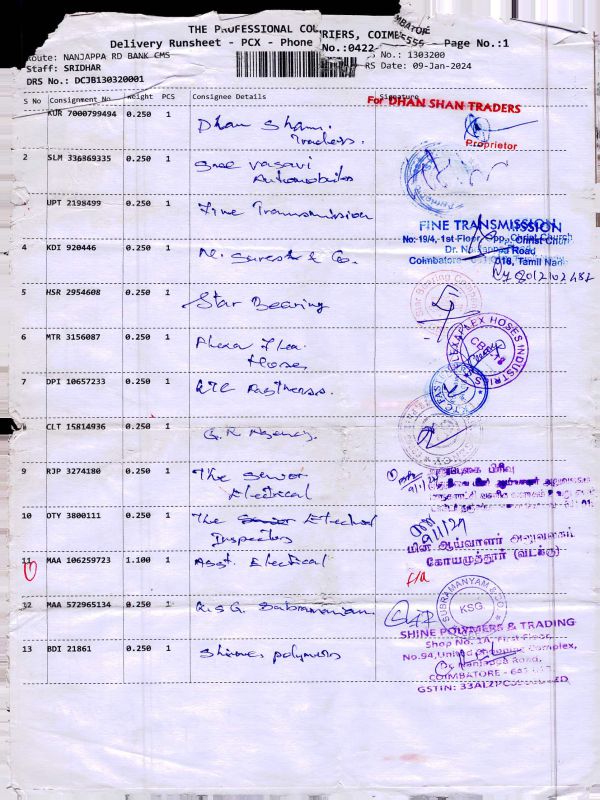 THE PROFESSIONAL COU RRIERS, COIMB
Delivery Runsheet - PCX - Phone No.:0422- Page No.:1
Route: NANJAPPA RD BANK CMS No.: 1303200
Staff: SRIDHAR RS Date: 09-Jan-2024
DRS No.: DCJB130320001
S No Consignment No Weight PCS Consignee Details Signature
KUR 7000799494 0.250 1 Dhan Shan
Traders.
For DHAN SHAN TRADERS
Proprietor
2 SLM 336369335 0.250 1 Sree Vasavi
Automobiles
3 UPT 2198499 0.250 1 Fine Transmission
FINE TRANSMISSION
No: 19/4, 1st Floor, Opp. Christ Church
Dr. Nanjappa Road
Coimbatore 018, Tamil Nadu
4 KDI 920446 0.250 1 N. Suresh & Co.
5 HSR 2954608 0.250 1 Star Bearing
Star Bearing Company
6 MTR 3156087 0.250 1 Flexa Flex
Hoses
FLEXAPLEX HOSES INDUSTRIES
CBE
7 DPI 10657233 0.250 1 KTC Fastners.
8 CLT 15814936 0.250 1 G.R Agency.
9 RJP 3274180 0.250 1 The Senior
Electrical
9/1/24
10 OTY 3800111 0.250 1 The Electrical
Inspector
9/1/24
மின் ஆய்வாளர் அலுவலகம்
கோயமுத்தூர் (வடக்கு)
11 MAA 106259723 1.100 1 Asst. Electrical
12 MAA 572965134 0.250 1 K.S.G. Subramaniam
SUBRAMANYAM & CO
KSG
13 BDI 21861 0.250 1 Shines polymers
SHINE POLYMERS & TRADING
Shop No. 1A, First Floor,
No.94, United Shopping Complex,
Dr. Nanjappa Road,
COIMBATORE - 641
GSTIN: 33ALZPC